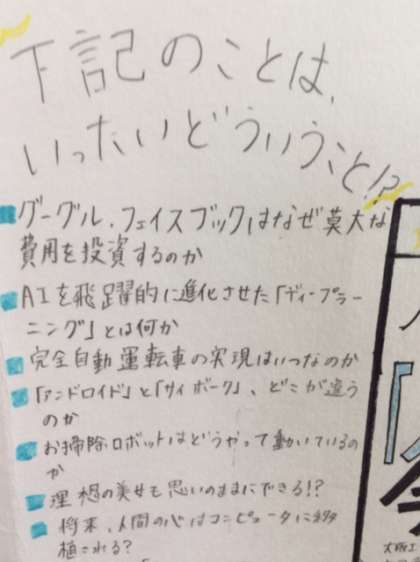 下記のことは、
いったいどういうこと!?
グーグル・フェイスブックはなぜ莫大な
費用を投資するのか
AIを飛躍的に進化させた「ディープラー
ニング」とは何か
完全自動運転車の実現はいつなのか
「アンドロイド」と「サイボーグ」、どこが違う
のか
お掃除ロボットはどうやって動いているの
か
理想の美女も思いのままにできる!?
将来、人間の心はコンピュータに移
植される?
大阪工